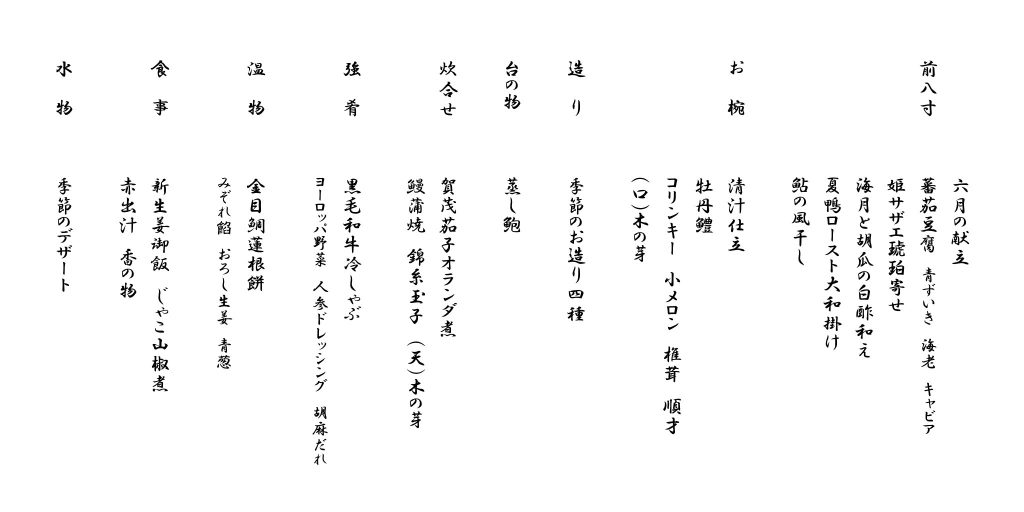 六月の献立
前八寸 蕃茄豆腐 青ずいき 海老 キャビア
姫サザエ琥珀寄せ
海月と胡瓜の白酢和え
夏鴨ロースト大和掛け
鮎の風干し
お椀 清汁仕立
牡丹鱧
コリンキー 小メロン 椎茸 順才
(口)木の芽
造り 季節のお造り四種
台の物 蒸し鮑
炊合せ 賀茂茄子オランダ煮
鰻蒲焼 錦糸玉子 (天)木の芽
強肴 黒毛和牛冷しゃぶ
ヨーロッパ野菜 人参ドレッシング 胡麻だれ
温物 金目鯛蓮根餅
みぞれ餡 おろし生姜 青葱
食事 新生姜御飯 じゃこ山椒煮
赤出汁 香の物
水物 季節のデザート